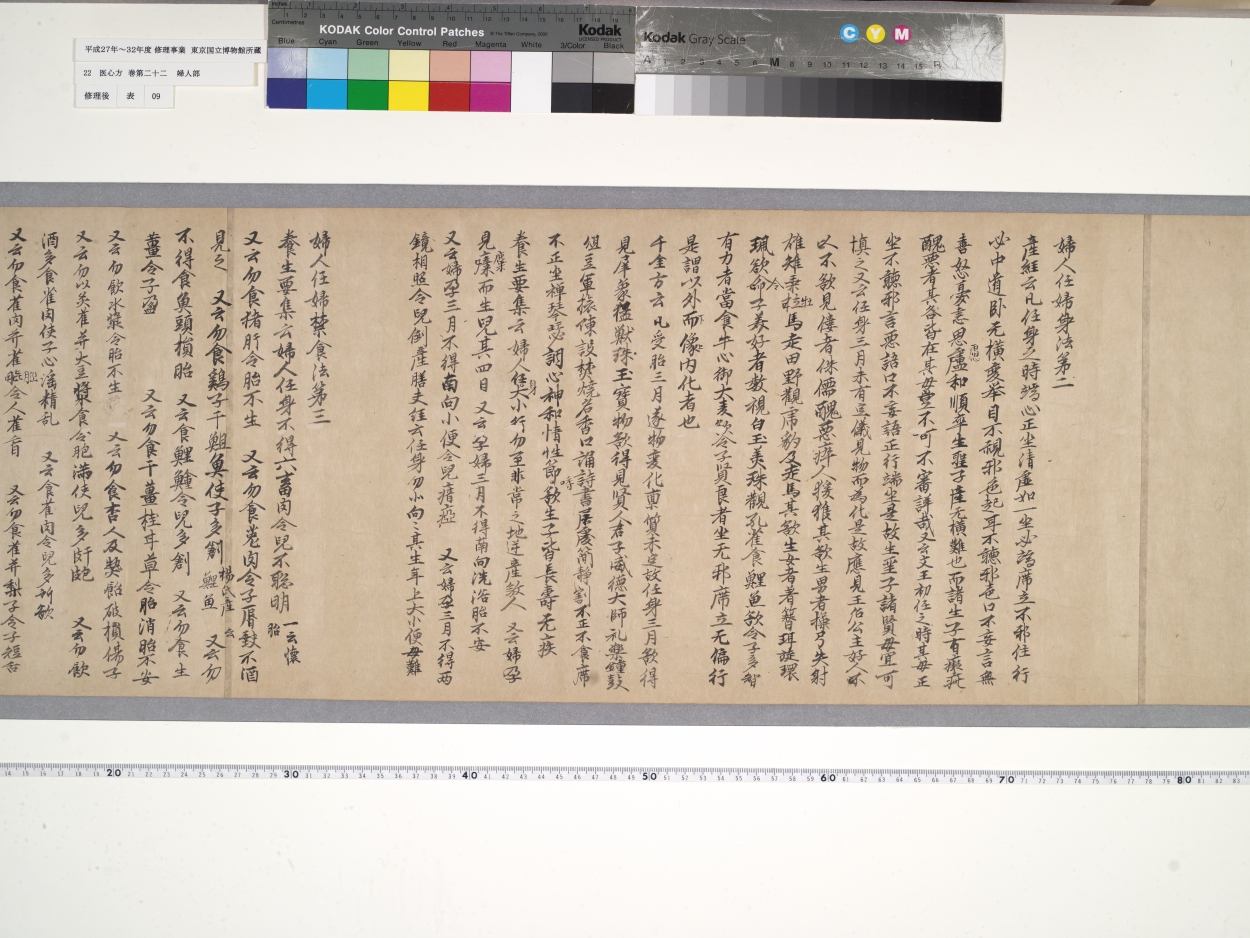 平成27年～32年度 修理事業 東京国立博物館所蔵
22 医心方 巻第二十二 婦人部
修理後 表 09
KODAK Color Control Patches
Kodak
LICENSED PRODUCT
Blue Cyan Green Yellow Red Magenta White 3/Color Black
Kodak Gray Scale
C Y M
A 1 2 3 4 5 6 M 8 9 10 11 12 13 14 15 B
婦人任婦身法第二
產經云凡任身之時端心正坐清虛如一坐必端席立不邪住行
必中道臥无橫變舉目不視邪色起耳不聽邪色口不妄言無
喜怒憂恚思慮和順卒生聖子產无橫難也而諸生子有癡疵
醜惡者其各皆在其母豈不可不審詳哉又云文王初任之時其母正
坐不聽邪言惡語口不妄語正行端坐是故生聖子諸賢母宜可
慎之又云任身三月未有定儀見物而為化是故應見王后公主好人
不欲見僂者侏儒醜惡瘁人猨猴其欲生男者操弓矢射
雄雉乘牡馬走田野觀虎豹及走馬其欲生女者著簪珥旋環
珮欲令子美好者數視白玉美珠觀孔雀食鯉魚欲令子多智
有力者當食牛心御大麦欲令子賢良者坐无邪席立无偏行
是謂以外而像内化者也
千金方云凡受胎三月遂物變化稟質未定故任身三月欲得
見犀象猛獸珠玉寶物欲得見賢人君子盛德大師礼樂鐘鼓
俎豆軍旅陳設焚燒名香口誦詩書居處簡靜割不正不食席
不正不坐彈琴瑟調心神和情性節嗜欲生子皆長壽无疾
養生要集云婦人任身大小行勿至非常之地逆產殺人 又云婦孕
見麋而生兒其四目 又云孕婦三月不得南向洗浴胎不安
又云婦孕三月不得南向小便令兒瘖瘂 又云婦孕三月不得兩
鏡相照令兒倒產膳夫經云任身勿小向之其生年上大小便母難
婦人任婦禁食法第三
養生要集云婦人任身不得六畜肉令兒不聰明 一云懷胎
又云勿食猪肝令胎不生 又云勿食菟肉令子脣缺不酒
見之 又云勿食鶏子干鯉魚使子多創 又云勿
不得食魚頭損胎 又云食鯉鱠令兒多創 又云勿食生
薑令子盈 又云勿食干薑桂耳草令胎消胎不安
又云勿飲水漿令胎不生 又云勿食杏人及熱飴破損傷子
又云勿以炙雀并大豆漿食令胞满使兒多皯皰 又云勿飲
酒多食雀肉使子心淫精乱 又云食雀肉令兒多所欲
又云勿食雀肉并雀脳令人雀盲 又云勿食雀并梨子令子短舌